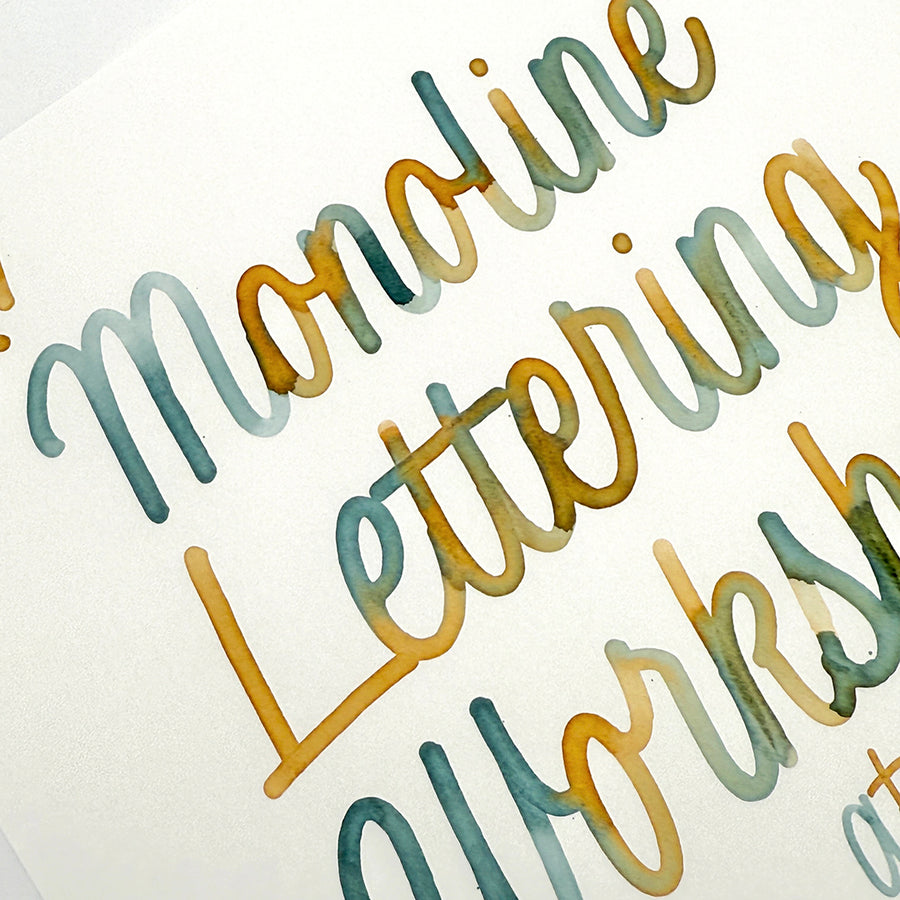 Monoline
Lettering
Worksh
at